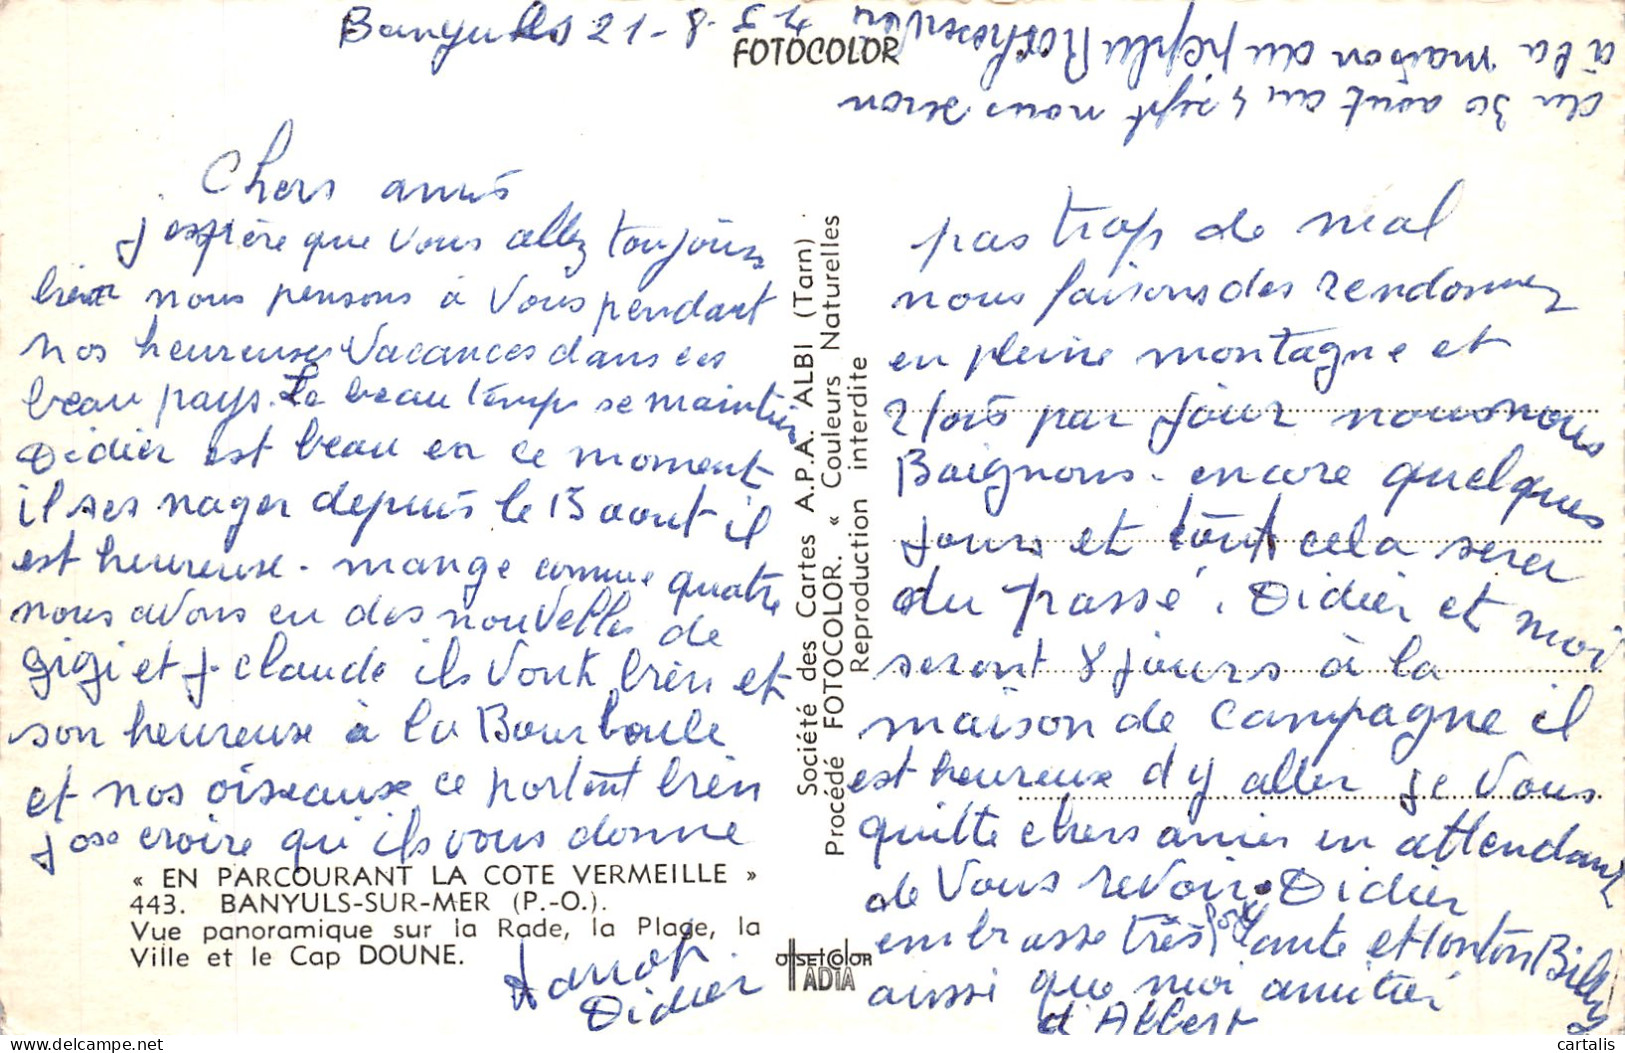 Banyuls 21-8-
FOTOCOLOR
du 30 aout au 4 sept nous seron
à la maison du
Chers amis
j espère que vous allez toujours
bien nous pensons à Vous pendant
nos heureuses Vacances dans ces
beau pays. Le beau temps se maintien
Didier est beau en ce moment
il ses nager depuis le 15 aout il
est heureuse. mange comme quatre
nous avons eu des nouvelles de
gigi et J. claude ils Vont bien et
son heureuse à la Bourboule
et nos oiseaux ce portent bien
j ose croire qu'ils vous donne
« EN PARCOURANT LA COTE VERMEILLE »
443. BANYULS-SUR-MER (P.-O.).
Vue panoramique sur la Rade, la Plage, la
Ville et le Cap DOUNE.
Didier
Société des Cartes A.P.A. ALBI (Tarn)
Procédé FOTOCOLOR. « Couleurs Naturelles
Reproduction interdite
OFFSETCOLOR
IADIA
pas trop de mal
nous faisons des
en pleine montagne et
2 fois par jour nous nous
Baignons. encore quelques
jours et tout cela sera
du passé. Didier et moi
seront 8 jours à la
maison de Campagne il
est heureux d y aller je Vous
quitte chers amies en attendant
de Vous revoir. Didier
embrasse très fort tante et tonton Billy
aussi que moi amitiés
d'Albert
cartalis